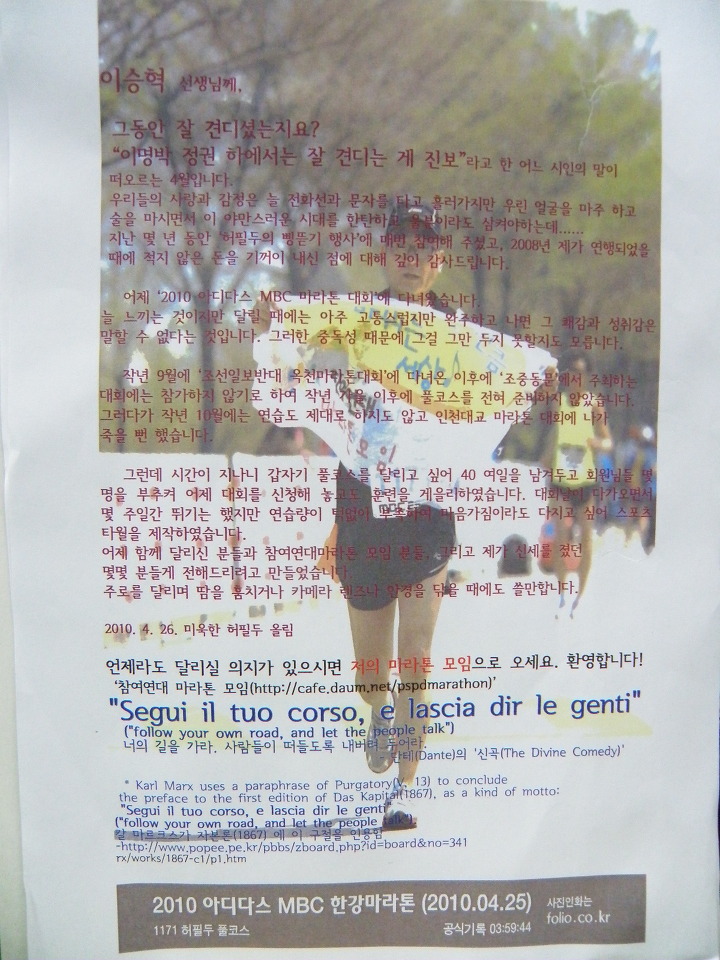 이승혁 선생님께,
그동안 잘 견디셨는지요?
“이명박 정권 하에서는 잘 견디는 게 진보”라고 한 어느 시인의 말이
떠오르는 4월입니다.
우리들의 사랑과 감정은 늘 전화선과 문자를 타고 흘러가지만 우린 얼굴을 마주 하고
술을 마시면서 이 야만스러운 시대를 한탄하고 울분이라도 삼켜야하는데......
지난 몇 년 동안 '허필두의 삥뜯기 행사'에 매번 참여해 주셨고, 2008년 제가 연행되었을
때에 적지 않은 돈을 기꺼이 내신 점에 대해 깊이 감사드립니다.
어제 '2010 아디다스 MBC 마라톤 대회'에 다녀왔습니다.
늘 느끼는 것이지만 달릴 때에는 아주 고통스럽지만 완주하고 나면 그 쾌감과 성취감은
말할 수 없다는 것입니다. 그러한 중독성 때문에 그걸 그만 두지 못할지도 모릅니다.
작년 9월에 '조선일보반대 옥천마라톤대회'에 다녀온 이후에 '조중동문'에서 주최하는
대회에는 참가하지 않기로 하여 작년 가을 이후에 풀코스를 전혀 준비하지 않았습니다.
그러다가 작년 10월에는 연습도 제대로 하지도 않고 인천대교 마라톤 대회에 나가
죽을 뻔 했습니다.
그런데 시간이 지나니 갑자기 풀코스를 달리고 싶어 40 여일을 남겨두고 회원님들 몇
명을 부추켜 어제 대회를 신청해 놓고도 훈련을 게을리하였습니다. 대회날이 다가오면서
몇 주일간 뛰기는 했지만 연습량이 턱없이 부족하여 마음가짐이라도 다지고 싶어 스포츠
타월을 제작하였습니다.
어제 함께 달리신 분들과 참여연대마라톤 모임 분들, 그리고 제가 신세를 졌던
몇몇 분들게 전해드리려고 만들었습니다.
주로를 달리며 땀을 훔치거나 카메라 렌즈나 안경을 닦을 때에도 쓸만합니다.
2010. 4. 26. 미욱한 허필두 올림
언제라도 달리실 의지가 있으시면 저의 마라톤 모임으로 오세요. 환영합니다!
'참여연대 마라톤 모임(http://cafe.daum.net/pspdmarathon)'
"Segui il tuo corso, e lascia dir le genti"
("follow your own road, and let the people talk")
너의 길을 가라. 사람들이 떠들도록 내버려 두어라.
- 단테(Dante)의 '신곡(The Divine Comedy)'
* Karl Marx uses a paraphrase of Purgatory(V, 13) to conclude
the preface to the first edition of Das Kapital(1867), as a kind of motto:
"Segui il tuo corso, e lascia dir le genti"
("follow your own road, and let the people talk").
칼 마르크스가 자본론(1867) 에 이 구절을 인용함
-http://www.popee.pe.kr/pbbs/zboard.php?id=board&no=341
rx/works/1867-c1/p1.htm
2010 아디다스 MBC 한강마라톤 (2010.04.25)
사진인화는
folio.co.kr
1171 허필두 풀코스
공식기록 03:59:44